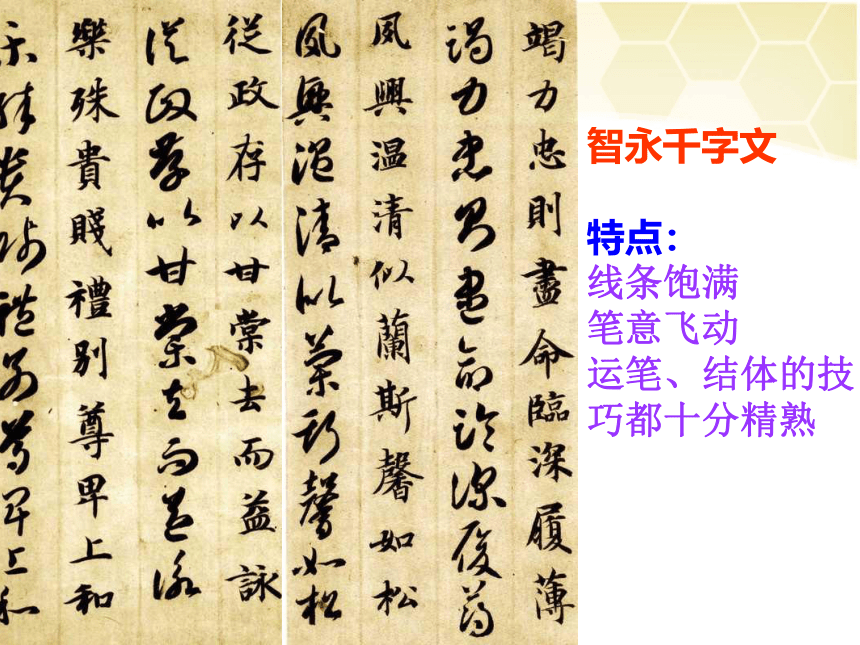 智永千字文
特点：
线条饱满
笔意飞动
运笔、结体的技
巧都十分精熟
竭力忠則盡命臨深履薄
竭力忠則盡命臨深履薄
夙興温清似蘭斯馨如松
夙興温清似蘭斯馨如松
從政存以甘棠去而益詠
從政存以甘棠去而益詠
樂殊貴賤禮别尊卑上和
樂殊貴賤禮别尊卑上和